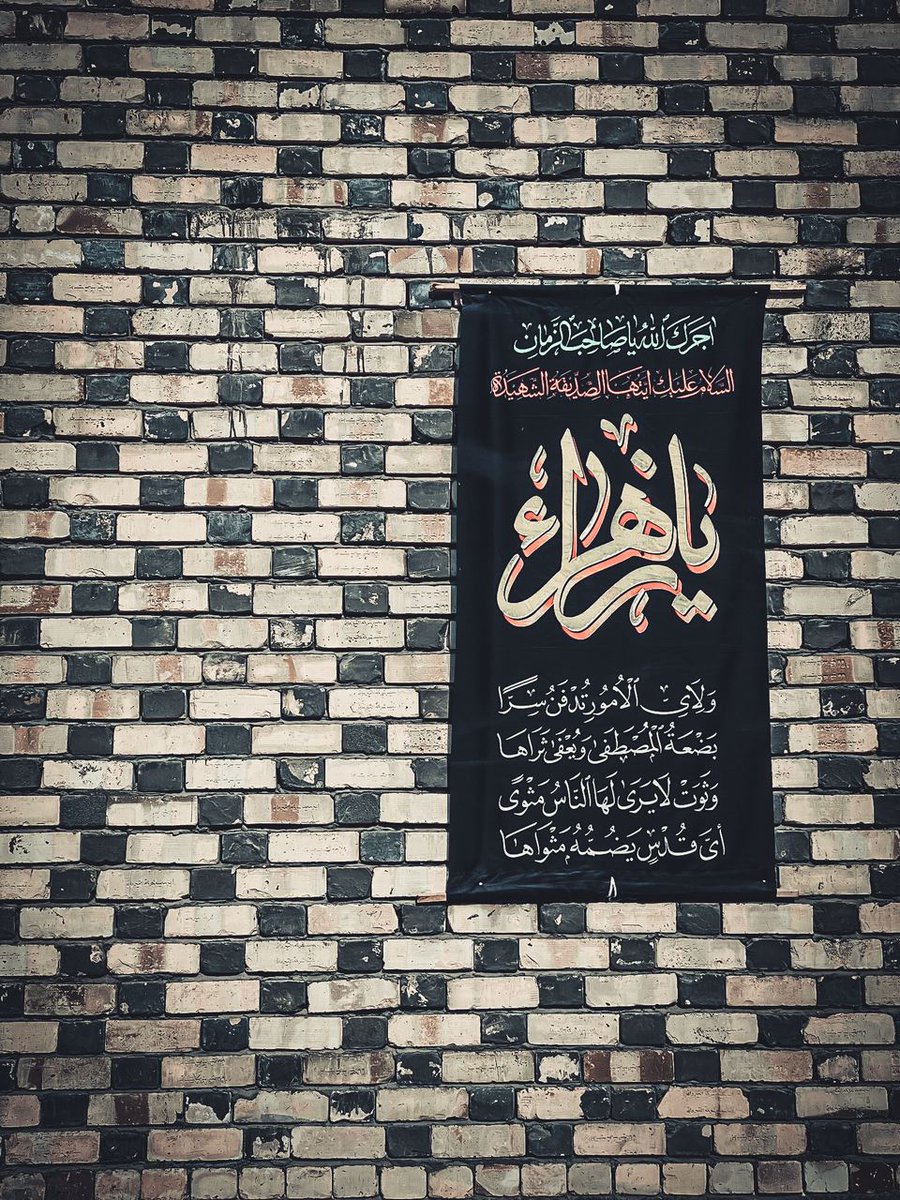 اجرك الله يا صاحب الزمان
السلام عليك ايتها الصديقة الشهيدة
يا زهراء
وَلِاَىِّ الْاُمُورِ تُدْفَنُ سِرًّا
بَضْعَةُ الْمُصْطَفىٰ وَيُعْفىٰ ثَرَاهَا
وَثَوَتْ لَا يَرىٰ لَهَا النَّاسُ مَثْوًى
أىُّ قُدْسٍ يَضُمُّهُ مَثْوَاهَا